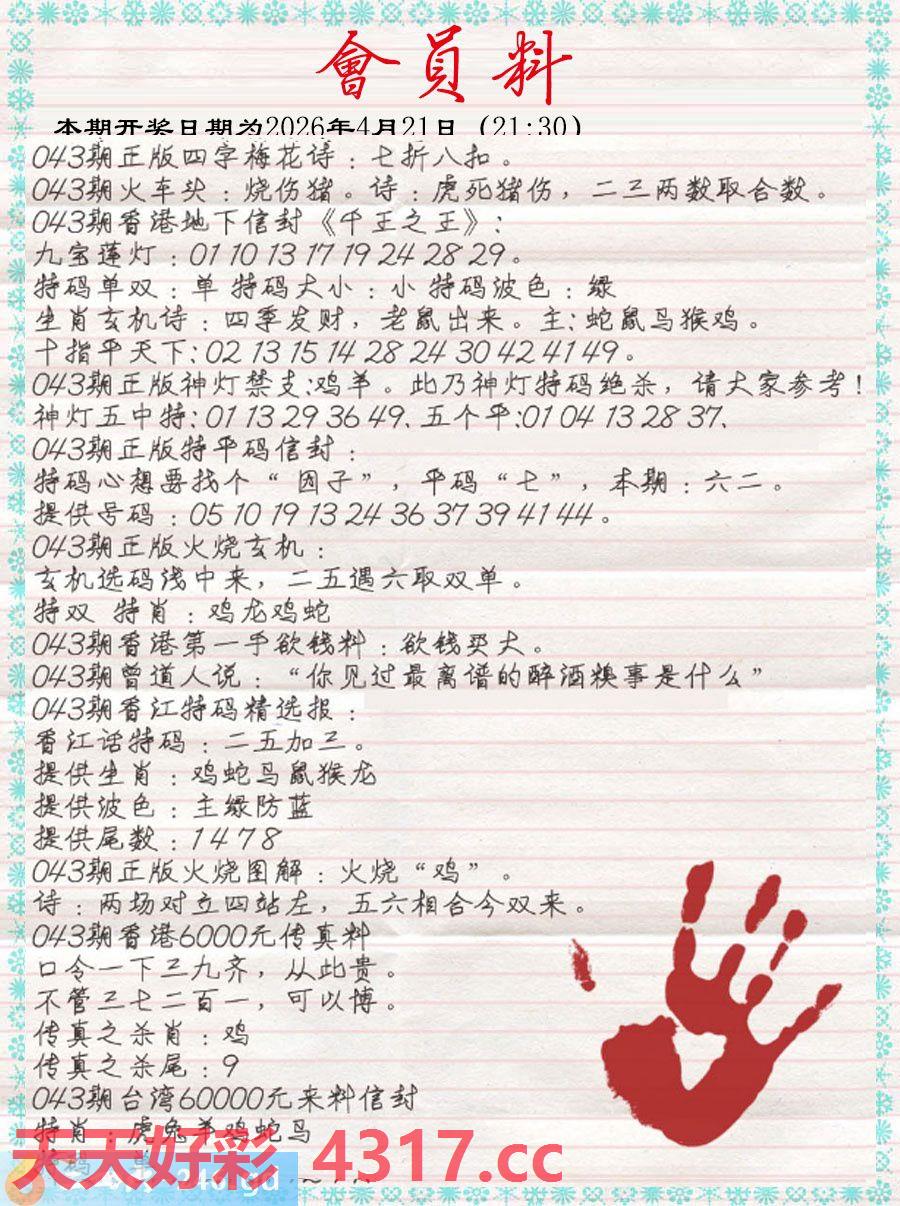 會員料
本期开奖日期为2026年4月21日（21:30）
043期正版四字梅花诗：七折八扣。
043期火车头：烧伤猪。诗：虎死猪伤，二三两数取合数。
043期香港地下信封《千王之王》：
九宝莲灯：01 10 13 17 19 24 28 29。
特码单双：单 特码大小：小 特码波色：绿
生肖玄机诗：四季发财，老鼠出来。主：蛇鼠马猴鸡。
十指平天下：02 13 15 14 28 24 30 42 41 49。
043期正版神灯禁支：鸡羊。此乃神灯特码绝杀，请大家参考！
神灯五中特：01 13 29 36 49、五个平：01 04 13 28 37、
043期正版特平码信封：
特码心想要找个“因子”，平码“七”，本期：六二。
提供号码：05 10 19 13 24 36 37 39 41 44。
043期正版火烧玄机：
玄机选码浅中来，二五遇六取双单。
特双 特肖：鸡龙鸡蛇
043期香港第一手欲钱料：欲钱买大。
043期曾道人说：“你见过最离谱的醉酒糗事是什么”
043期香江特码精选报：
香江话特码：二五加三。
提供生肖：鸡蛇马鼠猴龙
提供波色：主绿防蓝
提供尾数：1 4 7 8
043期正版火烧图解：火烧“鸡”。
诗：两场对立四站左，五六相合今双来。
043期香港6000元传真料
口令一下三九齐，从此贵。
不管三七二百一，可以博。
传真之杀肖：鸡
传真之杀尾：9
043期台湾60000元来料信封
特肖：虎兔羊鸡蛇马
天天好彩 4317.cc